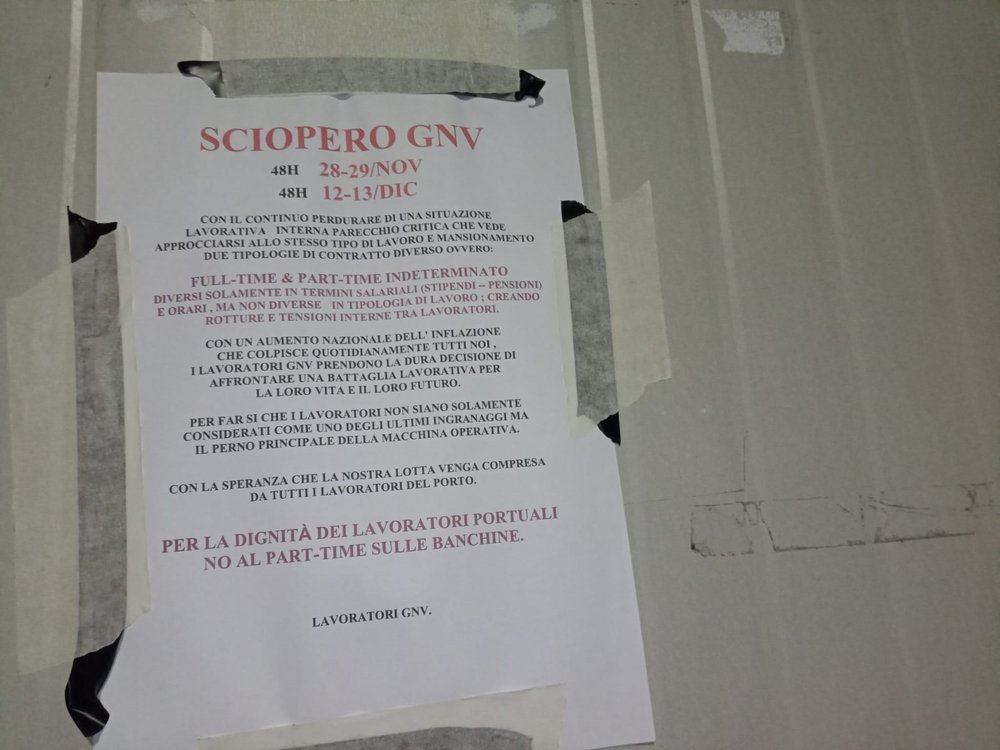 SCIOPERO GNV
48H 28-29/NOV
48H 12-13/DIC
CON IL CONTINUO PERDURARE DI UNA SITUAZIONE
LAVORATIVA INTERNA PARECCHIO CRITICA CHE VEDE
APPROCCIARSI ALLO STESSO TIPO DI LAVORO E MANSIONAMENTO
DUE TIPOLOGIE DI CONTRATTO DIVERSO OVVERO:
FULL-TIME & PART-TIME INDETERMINATO
DIVERSI SOLAMENTE IN TERMINI SALARIALI (STIPENDI – PENSIONI)
E ORARI , MA NON DIVERSE IN TIPOLOGIA DI LAVORO ; CREANDO
ROTTURE E TENSIONI INTERNE TRA LAVORATORI.
CON UN AUMENTO NAZIONALE DELL' INFLAZIONE
CHE COLPISCE QUOTIDIANAMENTE TUTTI NOI ,
I LAVORATORI GNV PRENDONO LA DURA DECISIONE DI
AFFRONTARE UNA BATTAGLIA LAVORATIVA PER
LA LORO VITA E IL LORO FUTURO.
PER FAR SI CHE I LAVORATORI NON SIANO SOLAMENTE
CONSIDERATI COME UNO DEGLI ULTIMI INGRANAGGI MA
IL PERNO PRINCIPALE DELLA MACCHINA OPERATIVA.
CON LA SPERANZA CHE LA NOSTRA LOTTA VENGA COMPRESA
DA TUTTI I LAVORATORI DEL PORTO.
PER LA DIGNITÀ DEI LAVORATORI PORTUALI
NO AL PART-TIME SULLE BANCHINE.
LAVORATORI GNV.